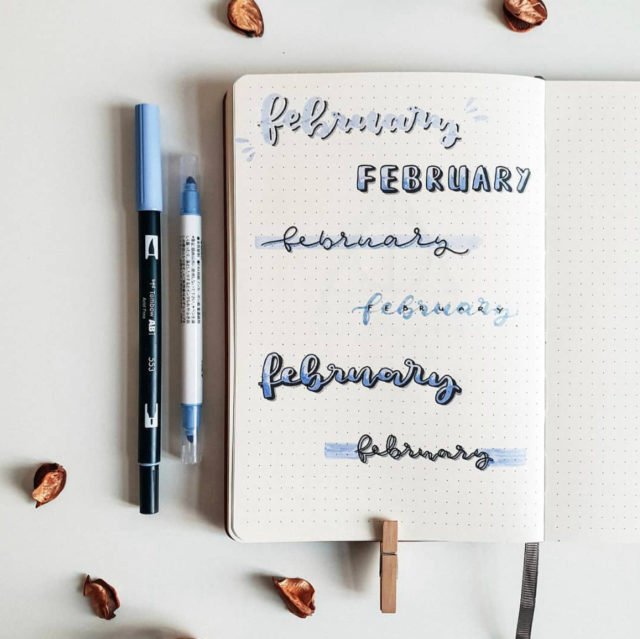 february
FEBRUARY
february
february
february
february
TOMBOW ABT
553